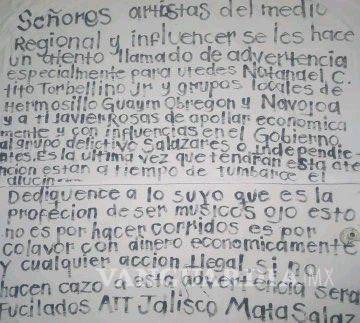 Señores artistas del medio
Regional y influencer se les hace
un atento llamado de advertencia
especialmente para utedes Natandel C.
tito Torbellino Jr y grupos locales de
Hermosillo Guaym Obregon y Navojoa
y a ti Javier Rosas de apollar economica
mente y con influencias en el Gobierno
al grupo delictivo Salazares o independie-
ntes. Es la ultima vez que tendran esta ate
ncion estan a tiempo de tumbarce el
alucin---
Dediquence a lo suyo que es la
profecion de ser musicos ojo esto
no es por hacer corridos es por
colavor con dinero economicamente
y cualquier accion Ilegal si no
hacen cazo a esta advertencia sera
Fucilados ATT Jalisco Mata Salaz
VANGUARDIA MX